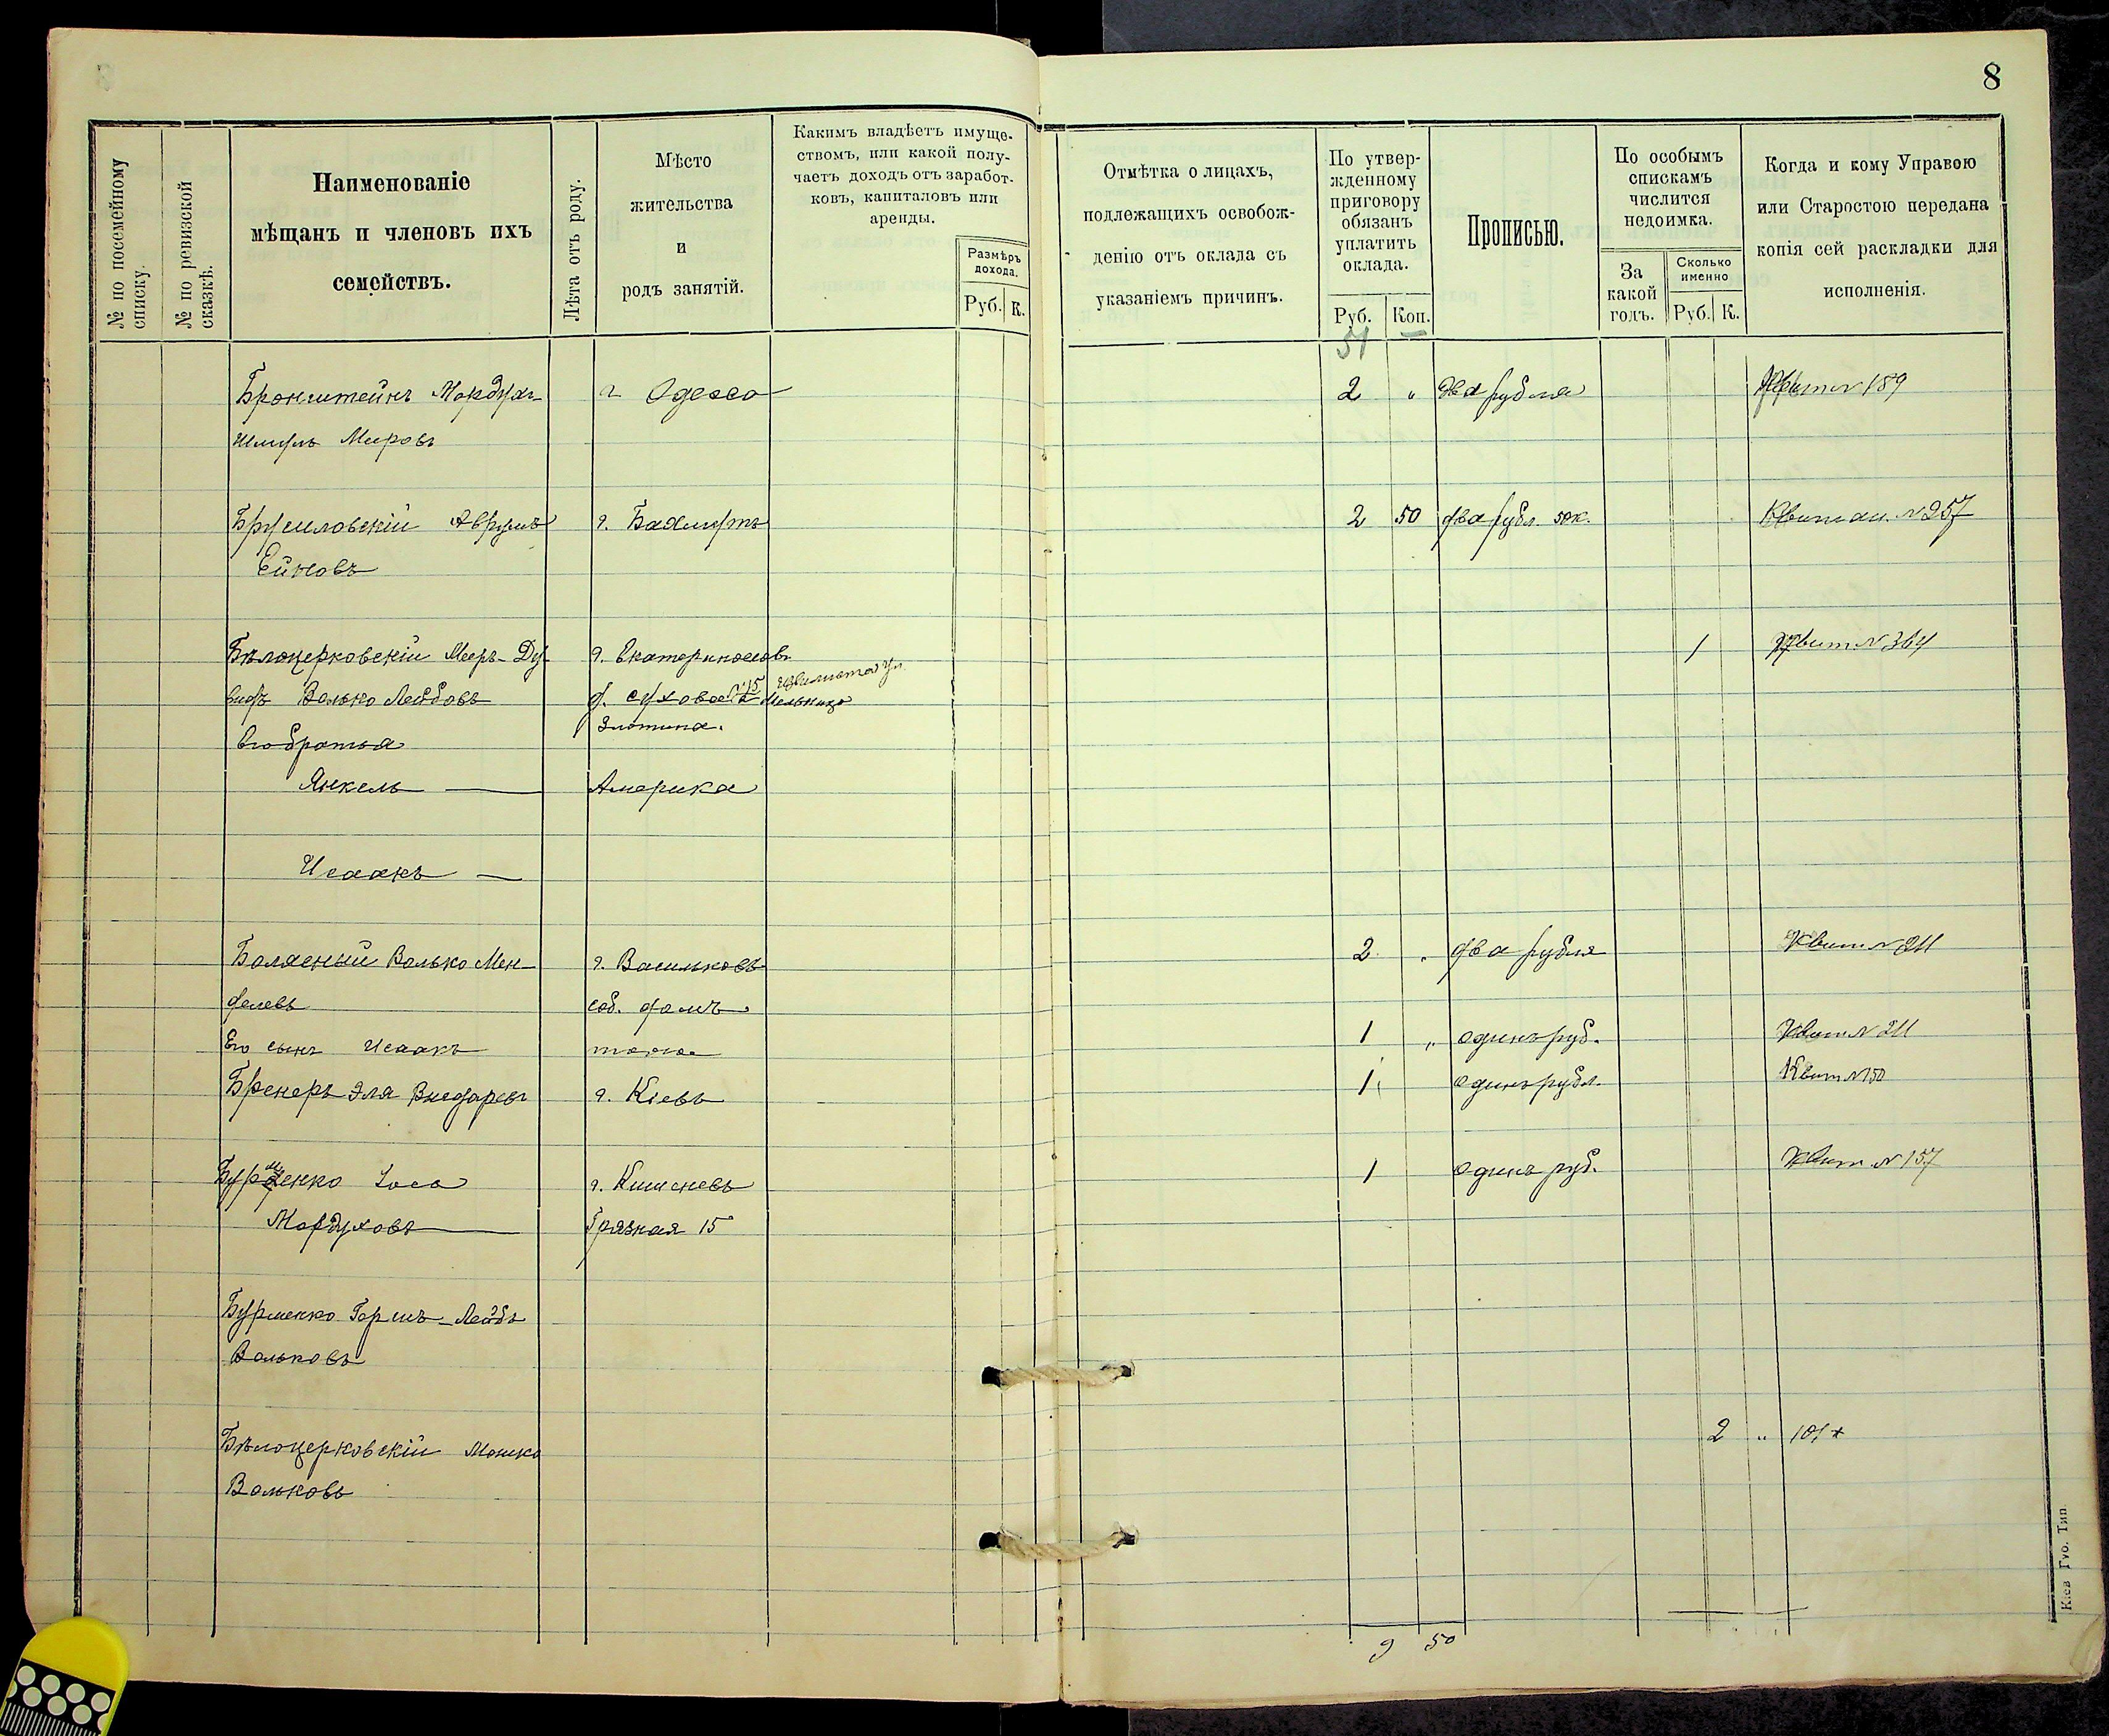 8
№ по посемейному списку.
№ по ревизской сказкѣ.
Наименованіе
мѣщанъ и членовъ ихъ
семействъ.
Лѣта отъ роду.
Мѣсто
жительства
и
родъ занятій.
Какимъ владѣетъ имуще-
ствомъ, или какой полу-
чаетъ доходъ отъ заработ-
ковъ, капиталовъ или
аренды.
Размѣръ
дохода.
Руб. К.
Отмѣтка о лицахъ,
подлежащихъ освобож-
денію отъ оклада съ
указаніемъ причинъ.
По утвер-
жденному
приговору
обязанъ
уплатить
оклада.
Руб. Коп.
Прописью.
По особымъ
спискамъ
числится
недоимка.
За
какой
годъ.
Сколько
именно
Руб. К.
Когда и кому Управою
или Старостою передана
копія сей раскладки для
исполненія.
51 —
Бронштейнъ Мордух- г Одесса 2 „ два рубля Квит № 189
Шмуль Меровъ
Брусиловскій Аврумъ г. Бахмутъ 2 50 два рубл. 50к. Квитан. № 257
Ейновъ
Бѣлоцерковскій Меръ-Ду- г. Екатеринослав. 1 Квит № 364
видъ Волько Лейбовъ д. Сухова № 15 Мельница
Его братья Злотина.
Янкель — Америка
Исаакъ —
Болясный Волько Мен- г. Васильковъ 2 „ два рубля Квит № 211
делевъ соб. домъ
Его сынъ Исаакъ тоже 1 „ одинъ руб. Квит № 211
Бренеръ Эля г. Кіевъ 1 одинъ рубл. Квит № 150
Бурменко Іось г. Кишиневъ 1 одинъ руб. Квит № 157
Мордуховъ — Грязная 15
Бурменко Гершъ-Лейбъ
Вольковъ
Бѣлоцерковскій Мошко 2 „ 101 +
Вольковъ
9 50
Кіев Губ. Тип.